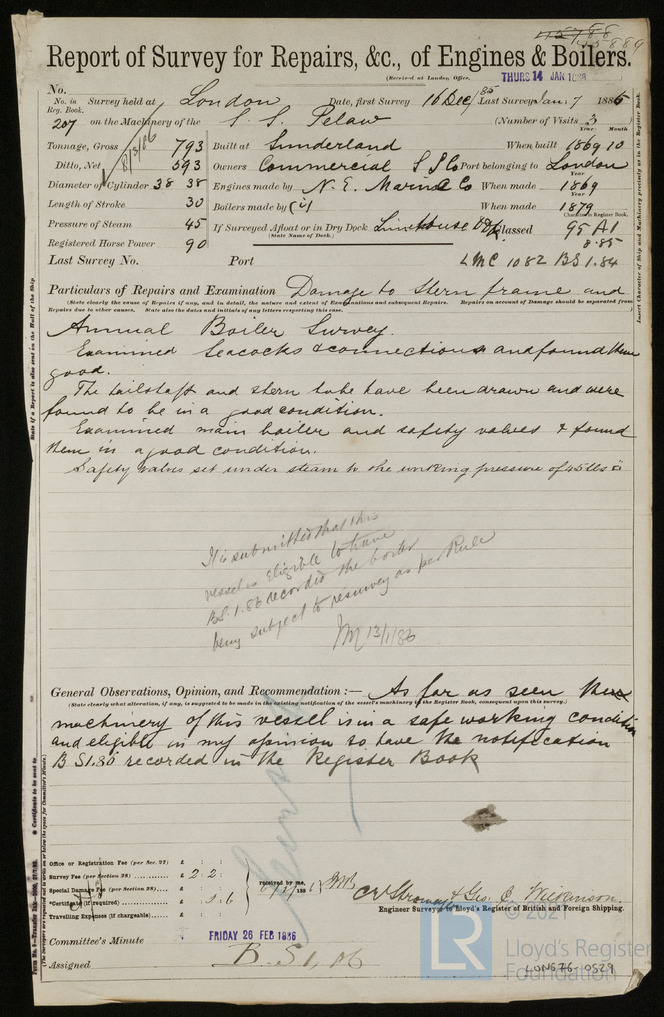 Report of Survey for Repairs, &c., of Engines & Boilers.
(Received at London Office, THURS 14 JAN 1886
No.
No. in Reg. Book. Survey held at London Date, first Survey 16 Dec/85 Last Survey Jan. 7 1886
207 on the Machinery of the S.S. Pelaw (Number of Visits 3
Tonnage, Gross 793 Built at Sunderland When built 1869 10
Ditto, Net 593 Owners Commercial S S Co Port belonging to London
Diameter of Cylinder 38 38 Engines made by N. E. Marine Co When made 1869
Length of Stroke 30 Boilers made by (1) When made 1879
Pressure of Steam 45 If Surveyed Afloat or in Dry Dock Limehouse D Dk. Classed 95 A1
(State Name of Dock.) 8.85
Registered Horse Power 90
Last Survey No. Port LMC 10 82 BS 1.84
Particulars of Repairs and Examination Damage to stern frame and
(State clearly the cause of Repairs if any, and in detail, the nature and extent of Examinations and subsequent Repairs. Repairs on account of Damage should be separated from
Repairs due to other causes. State also the dates and initials of any letters respecting this case.
Annual Boiler Survey.
Examined Seacocks & connections and found them
good.
The tailshaft and stern tube have been drawn and were
found to be in a good condition.
Examined main boiler and safety valves & found
them in a good condition.
Safety valves set under steam to the working pressure of 45 lbs □"
It is submitted that this
vessel is eligible to have
BS. 1.86 recorded the boiler
being subject to resurvey as per Rule
13/1/86
General Observations, Opinion, and Recommendation :— As far as seen the
(State clearly what alteration, if any, is suggested to be made in the existing notification of the vessel's machinery in the Register Book, consequent upon this survey.)
machinery of this vessel is in a safe working condition
and eligible in my opinion to have the notification
B S 1.86 recorded in the Register Book
Office or Registration Fee (per Sec. 27) £ : :
Survey Fee (per Section 28) £ 2 : 2 :
Special Damage Fee (per Section 28) £ : :
*Certificate (if required) £ : 2 . 6
Travelling Expenses (if chargeable) £ : :
received by me,
& Geo. C. Wilkinson.
Engineer Surveyor to Lloyd's Register of British and Foreign Shipping.
Committee's Minute FRIDAY 26 FEB 1886
Assigned B. S 1, 86
© 2021
LR
Lloyd's Register
Foundation
LON676-0529